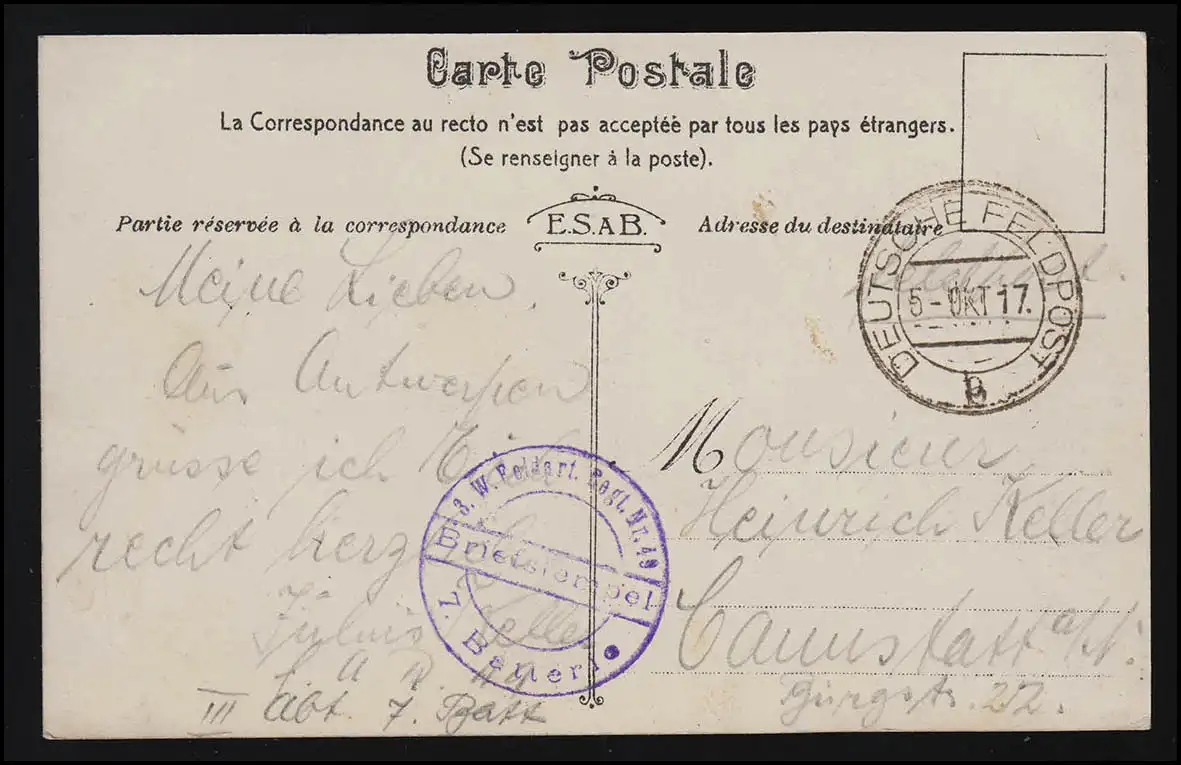 Carte Postale
La Correspondance au recto n'est pas acceptée par tous les pays étrangers.
(Se renseigner à la poste).
Partie réservée à la correspondance
E.S.A B.
Adresse du destinataire
DEUTSCHE FELDPOST
5 - OKT 17.
b
Meine Lieben,
Aus Antwerpen
grüsse ich Euch
recht herz
Julius Keller
F. A. R. 49
III Abt. 7. Batt
3. W. Feldart. Regt. Nr. 49
Briefstempel
7. Batterie
Monsieur
Heinrich Keller
Cannstatt a/N.
Burgstr. 22.